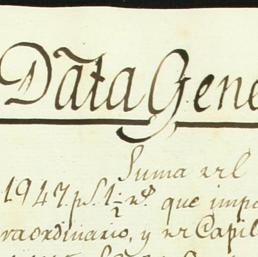 Data Gene
Suma
1947. ps. 1½ rs. que impo
raordinario, y en Capil